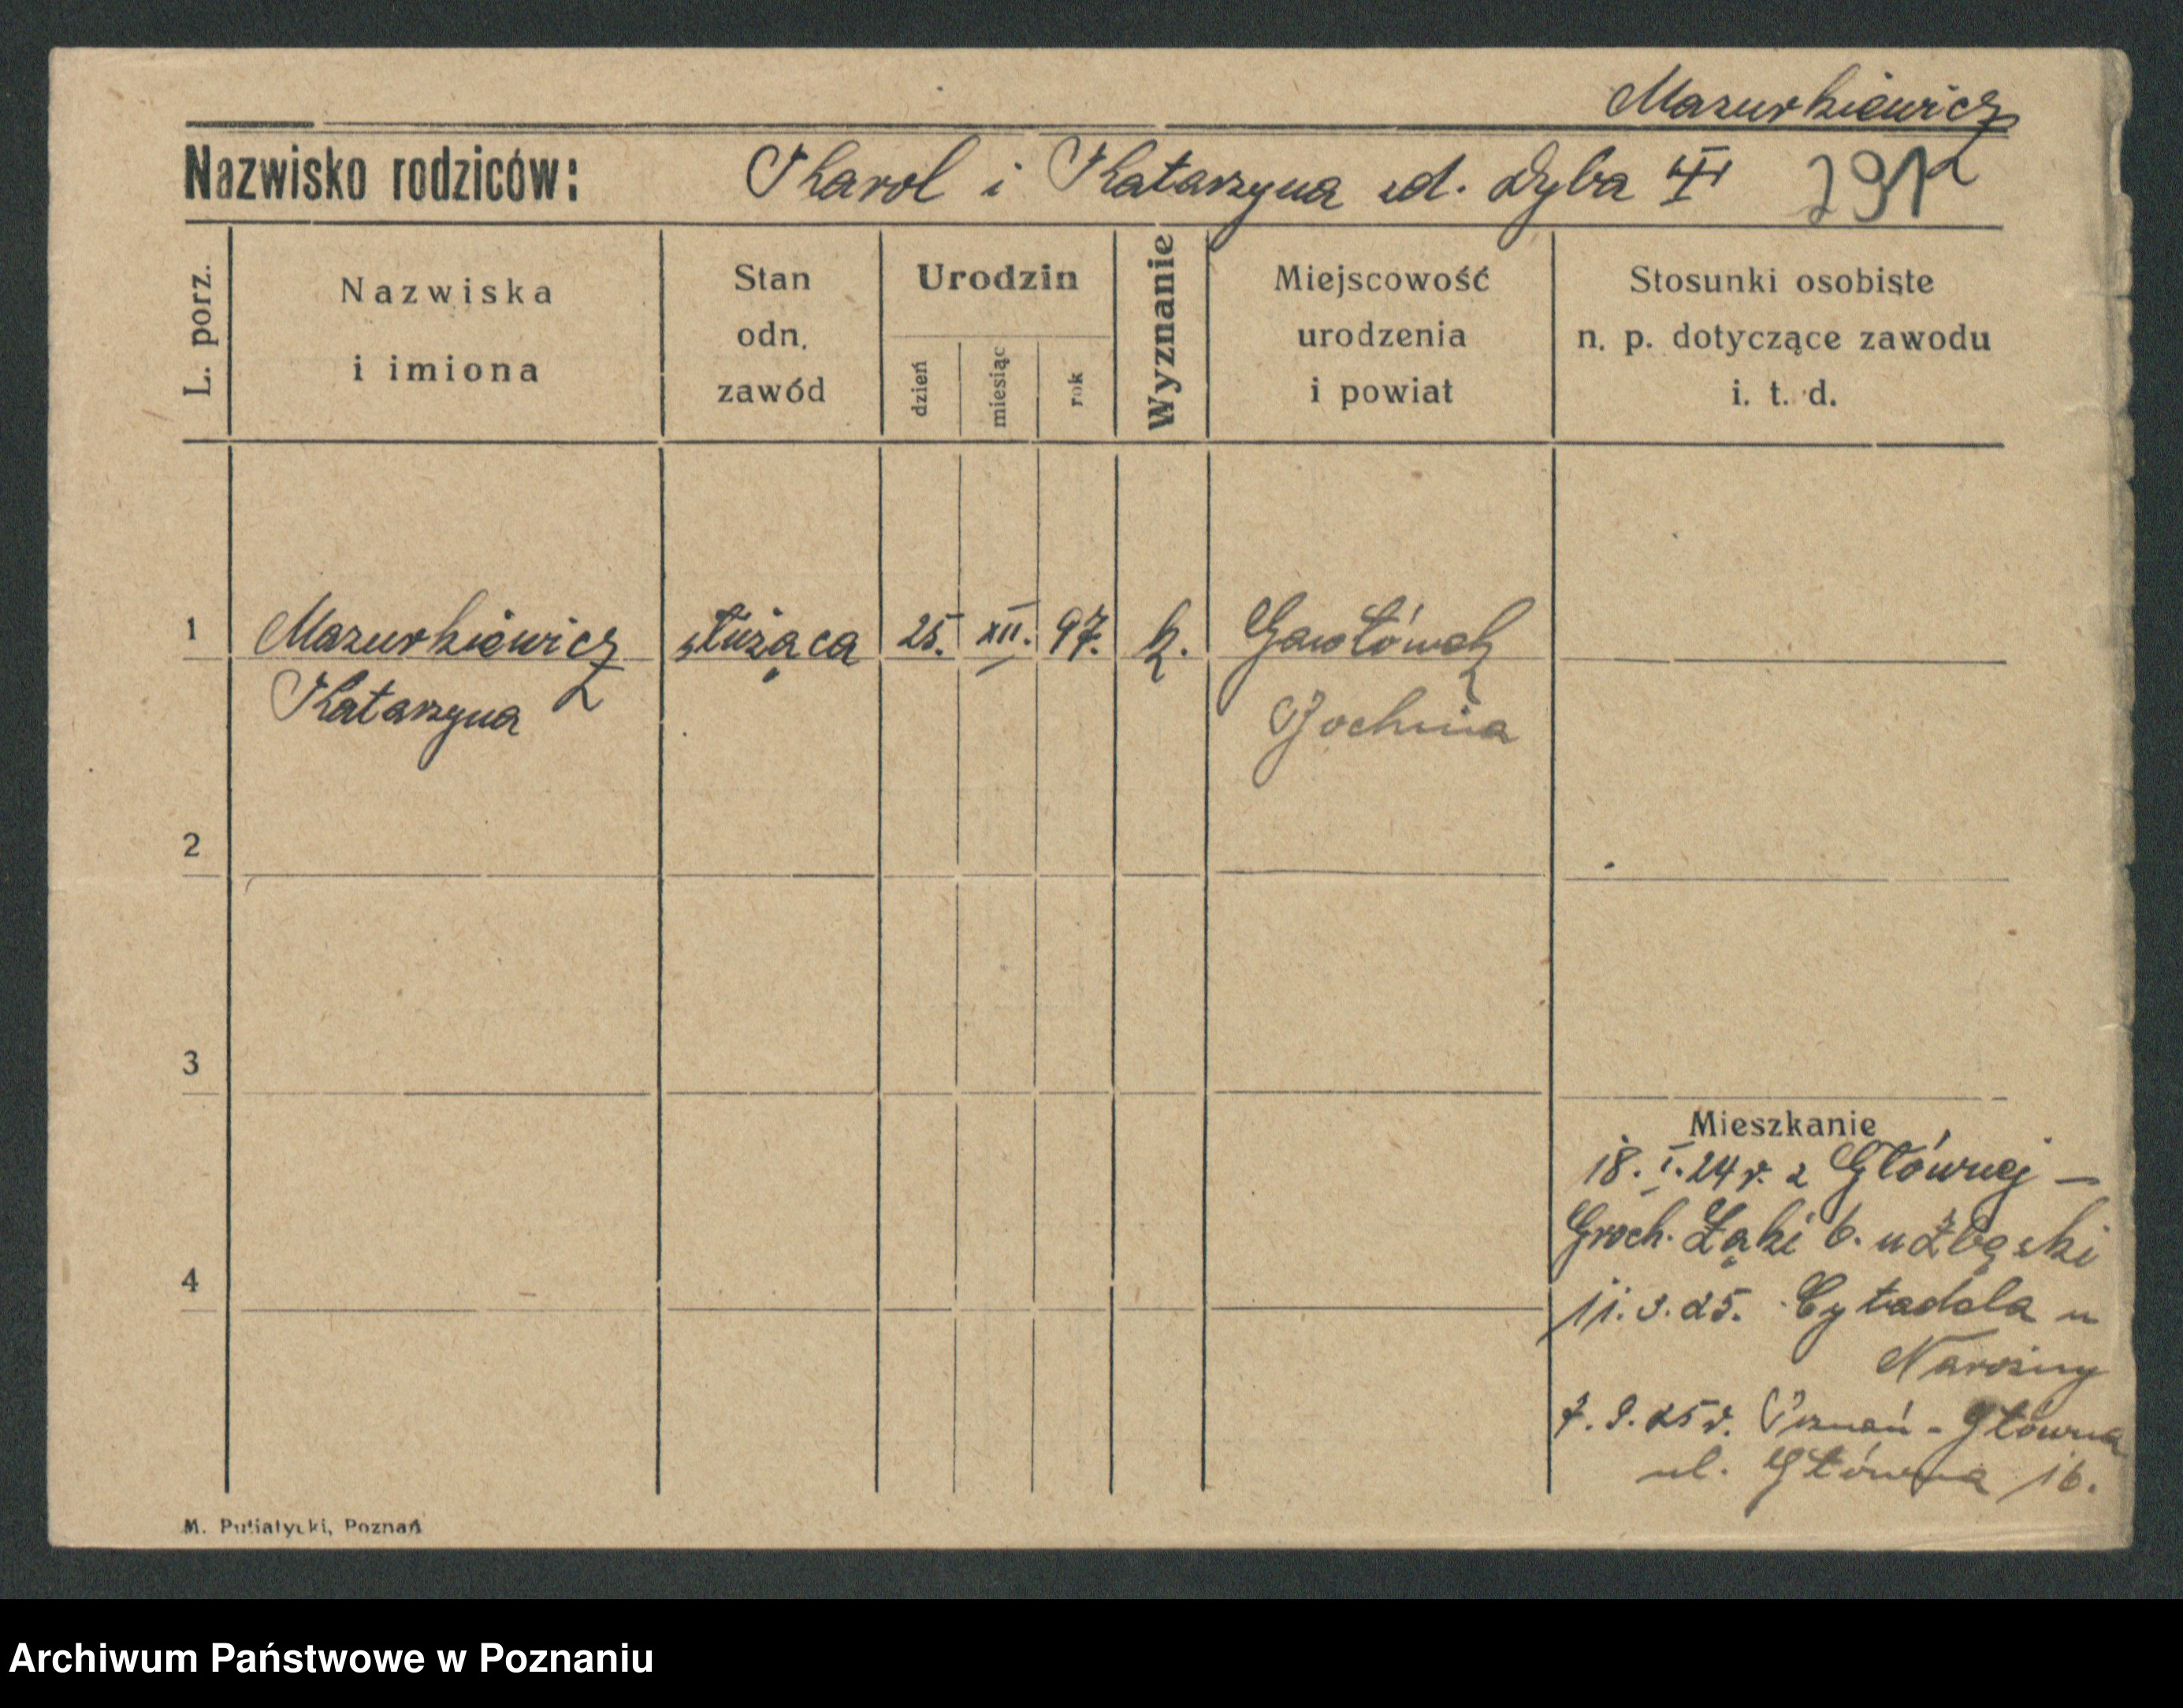 Mazurkiewicz
Nazwisko rodziców: Karol i Katarzyna zd. Dyba
L. porz.
Nazwiska i imiona
Stan odn. zawód
Urodzin
dzień
miesiąc
rok
Wyznanie
Miejscowość urodzenia i powiat
Stosunki osobiste n. p. dotyczące zawodu i. t. d.
1 Mazurkiewicz służąca 25. XII. 97. k. Gawłówek
Katarzyna Bochnia
2
3
Mieszkanie
18. I. 24 r. z Głównej –
Groch. Łąki 6. u
4
11. 3. 25. Cytadela u
7. 9. 25 r. Poznań - Główna
ul. Główna 16.
M. Putiatycki, Poznań
Archiwum Państwowe w Poznaniu